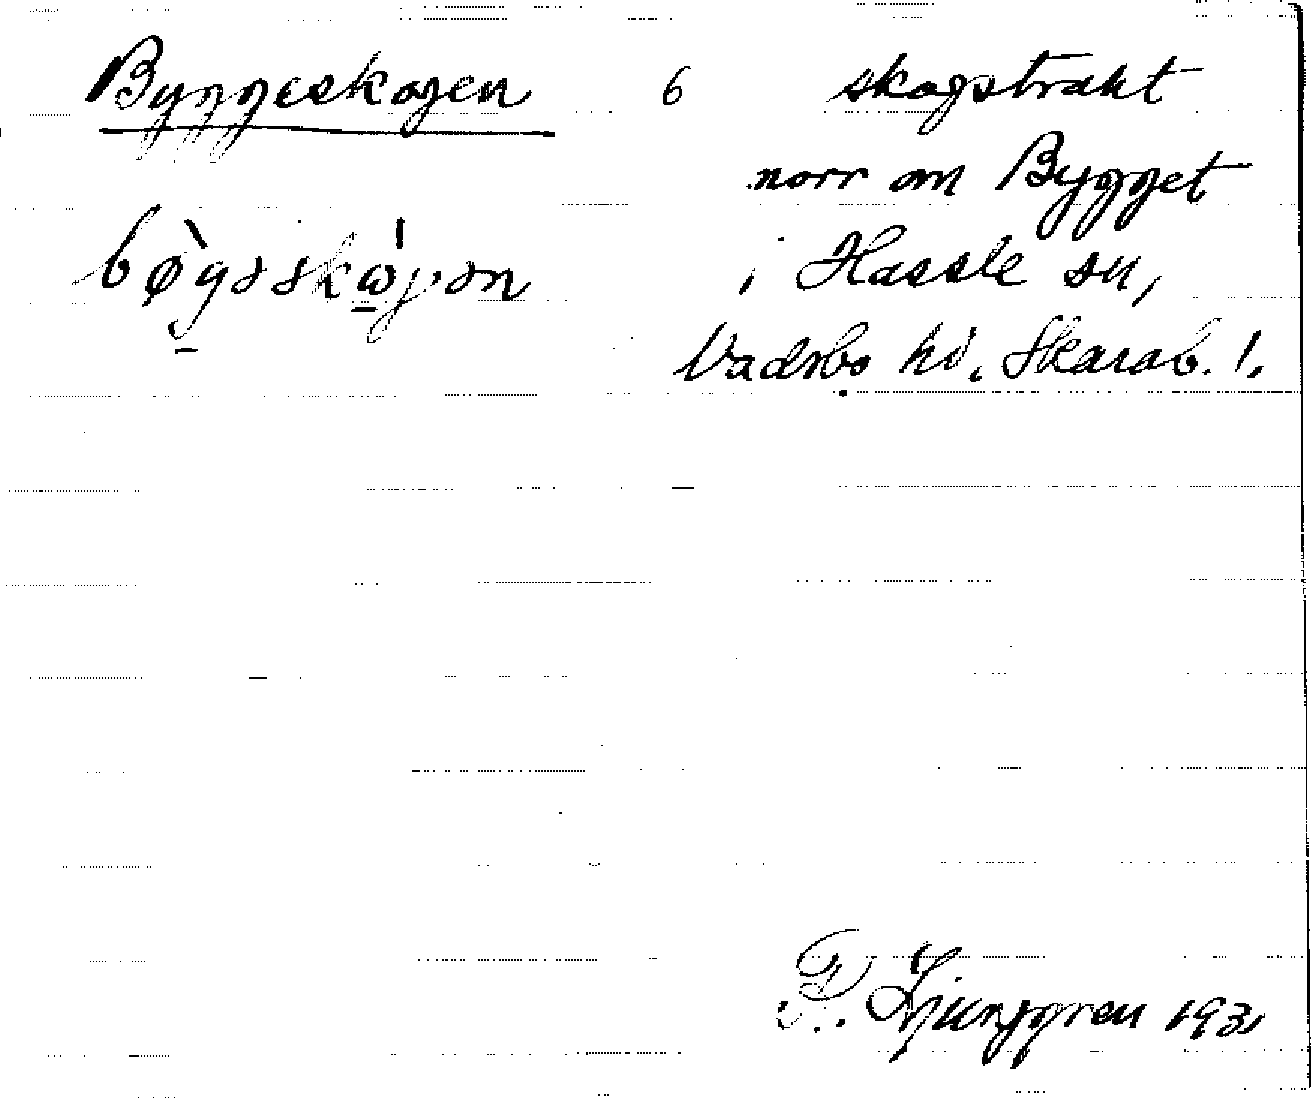 Byggeskogen 6 skogstrakt
norr om Bygget
i Hassle sn,
Vadsbo hd. Skarab. l.
F. Ljunggren 1931